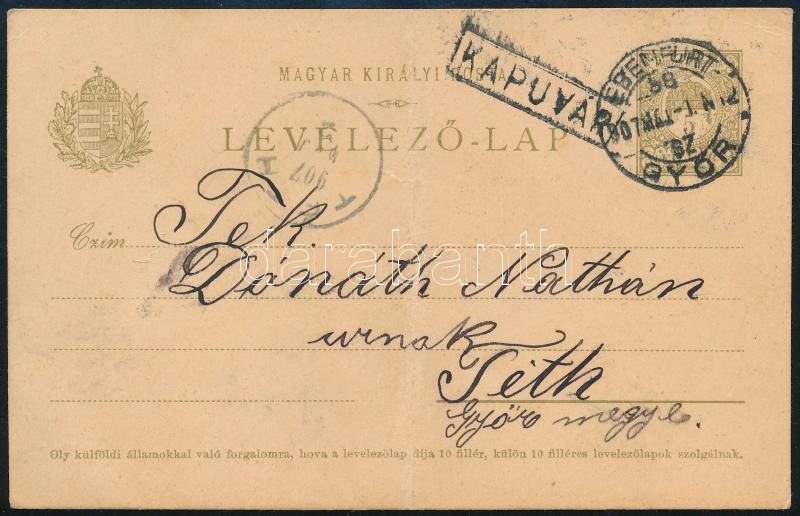 MAGYAR KIRÁLYI POSTA
LEVELEZŐ-LAP
KAPUVÁR
EBENFURT
59
907 MÁJ -1 N 2
SZ
GYŐR
907
T
Czím
Tek.
Dánáth Nathán
urnak
Téth
Győr megye.
darabanth
Oly külföldi államokkal való forgalomra, hova a levelezőlap díja 10 fillér, külön 10 filléres levelezőlapok szolgálnak.